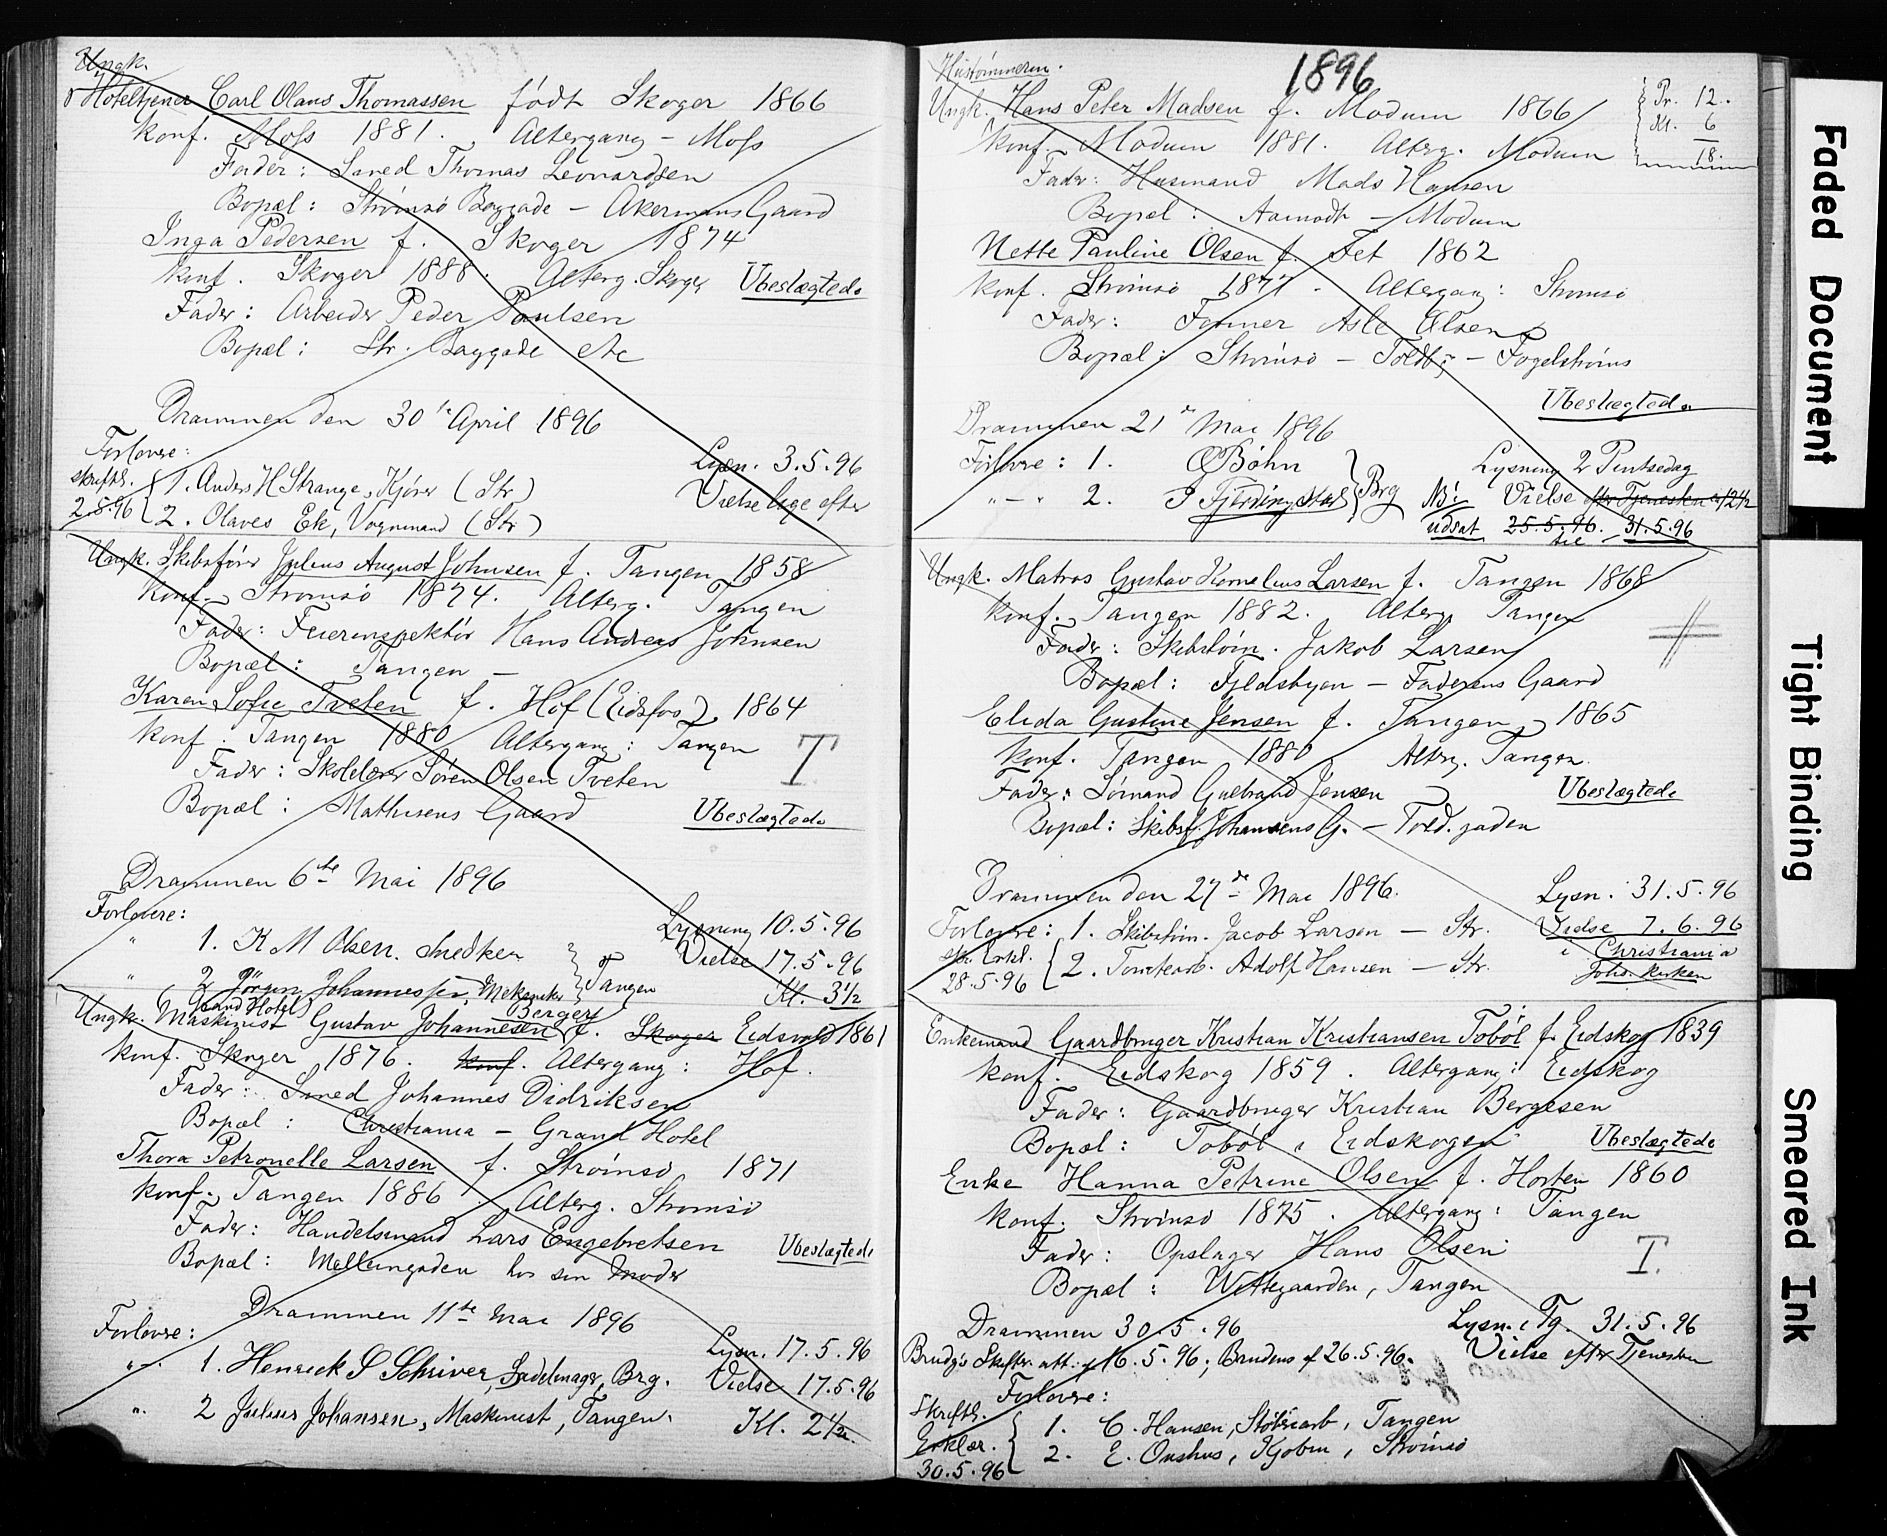 Ungk.
Hoteltjener Carl Olaus Thomassen født Skoger 1866
konf. Moss 1881. Altergang - Moss
Fader: Smed Thomas Leonardsen
Bopæl: Strømsø Baggade - Akermans Gaard
Inga Pedersen f. Skoger 1874
konf. Skoger 1888. Alterg. Skoger Ubeslægtede
Fader: Arbeider Peder Paulsen
Bopæl: Str. Baggade etc
Drammen den 30te April 1896
Forlovere: Lysn. 3.5.96
skriftl. 1. Anders H Strange, Kjører (Str) Vielse lige efter
2.5.96 2. Olaves Ek, Vognmand (Str)
Ungk. Skibsfører Julius August Johnsen f. Tangen 1858
konf. Strømsø 1874. Alterg. Tangen
Fader: Feierinspektør Hans Andreas Johnsen
Bopæl: Tangen -
Karen Sofie Tveten f. Hof (Eidsfos) 1864
konf. Tangen 1880 Altergang: Tangen T
Fader: Skolelærer Søren Olsen Tveten
Bopæl: Mathisens Gaard Ubeslægtede
Drammen 6te Mai 1896
Forlovere: Lysning 10.5.96
" 1. K M Olsen. Snedker Vielse 17.5.96
" 2 Jørgen Johannessen, Mekaniker Tangen Kl. 3½
(Grand Hotel) Berger
Ungk. Maskinist Gustav Johannesen f. Skoger Eidsvold 1861
konf. Skoger 1876. konf. Altergang: Hof.
Fader: Smed Johannes Didriksen
Bopæl: Christiania - Grand Hotel
Thora Petronelle Larsen f. Strømsø 1871
konf. Tangen 1886 Alterg. Strømsø
Fader: Handelsmand Lars Engebretsen Ubeslægtede
Bopæl: Mellemgaden hos sin Moder
Drammen 11te Mai 1896
Forlovere: Lysn. 17.5.96
"-. 1. Henrick S Schriver, Sadelmager, Brg. Vielse 17.5.96
". 2 Julius Johansen, Maskinist, Tangen. Kl. 2½.
1896
Hustømmerm.
Ungk. Hans Peter Madsen f. Modum 1866 Pr. 12..
Kl. 6
konf. Modum 1881. Alterg. Modum 18.
Fader: Husmand Mads Hansen
Bopæl: Aamodt - Modum
Nette Pauline Olsen f. Fet 1862
konf. Strømsø 1877. Altergang: Strømsø
Fader: Former Asle Olsen
Bopæl: Strømsø - Toldbg - Fogelstrøms
Ubeslægtede
Drammen 21de Mai 1896
Forlovere: 1. O Bøhn Lysning 2 Pintsedag
"-" 2. Brg NB! Vielse efter Tjenesten 12½
udsat 25.5.96. til 31.5.96
Ungk. Matros Gustav Kornelius Larsen f. Tangen 1868
konf. Tangen 1882. Alterg. Tangen
Fader: Skibstøm. Jakob Larsen
Bopæl: Fjeldsbyen - Faderens Gaard
Elida Gustine Jensen f. Tangen 1865
konf. Tangen 1880 Alterg. Tangen.
Fader: Sømand Gulbrand Jensen Ubeslægtede
Bopæl: Skibsf. Johansens G. - Told.gaden
Drammen den 27de Mai 1896. Lysn. 31.5.96
Forlovere: 1. Skibstøm. Jacob Larsen - Str. Vielse 7.6.96
skr. Erkl. 2. Tomtearb. Adolf Hansen - Str. i Christiania
28.5.96 Johs. kirken
Enkemand Gaardbruger Kristian Kristiansen Tobøl f. Eidskog 1839
konf. Eidskog 1859. Altergang: Eidskog
Fader: Gaardbruger Kristian Bergesen
Bopæl: Tobøl i Eidskogen Ubeslægtede
Enke Hanna Petrine Olsen f. Horten 1860
konf. Strømsø 1875. Altergang: Tangen
Fader: Opslager Hans Olsen T.
Bopæl: Wittegaarden, Tangen
Drammen 30.5.96 Lysn. i Tg. 31.5.96
Brudg's Skifteratt. af 16.5.96; Brudens af 26.5.96. Vielse efter Tjenesten
Forlovere:
Skriftl. 1. C. Hansen, Støberiarb, Tangen
Erklær. 2. E. Onshus, Kjøbm, Strømsø
30.5.96
Faded Document
Tight Binding
Smeared Ink